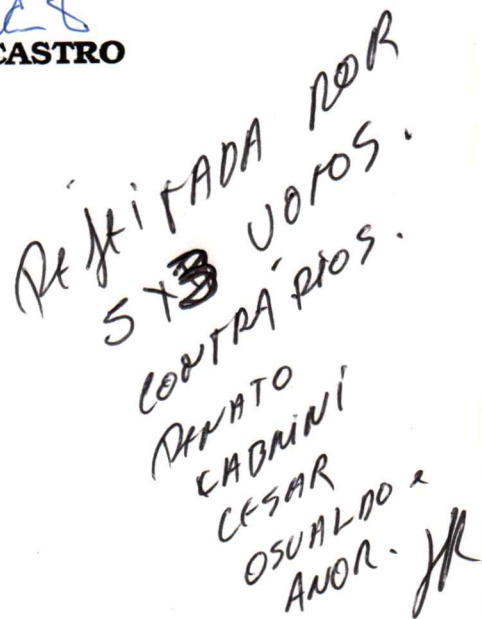 CASTRO
REJEITADA POR
5x3 VOTOS.
CONTRÁRIOS.
RENATO
CABRINI
CESAR
OSVALDO e
ANOR.